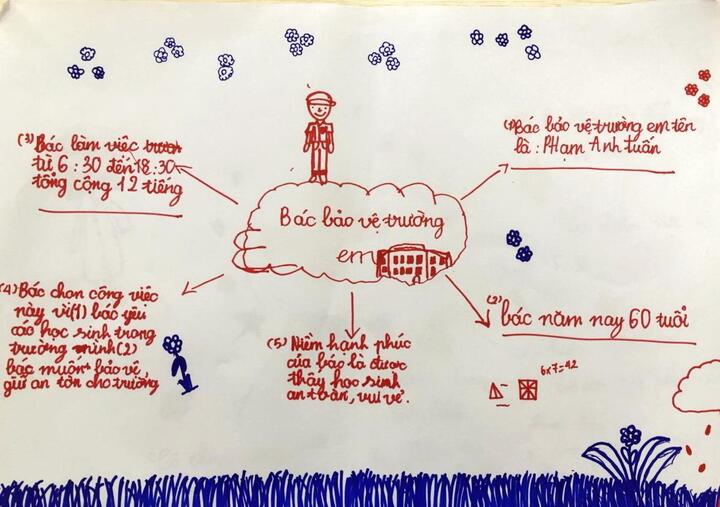 Bác bảo vệ trường
em
(1) Bác bảo vệ trường em tên
là : PHạm Anh tuấn
(2)
bác năm nay 60 tuổi
6x7=42
(3) Bác làm việc
từ 6 : 30 đến 18 : 30
tổng cộng 12 tiếng
(4) Bác chọn công việc
này vì (1) bác yêu
học sinh trong
trường mình (2)
bác muốn bảo vệ,
giữ an tòn cho trường
(5) Niềm hạnh phúc
của bác là được
thấy học sinh
an toàn, vui vẻ.